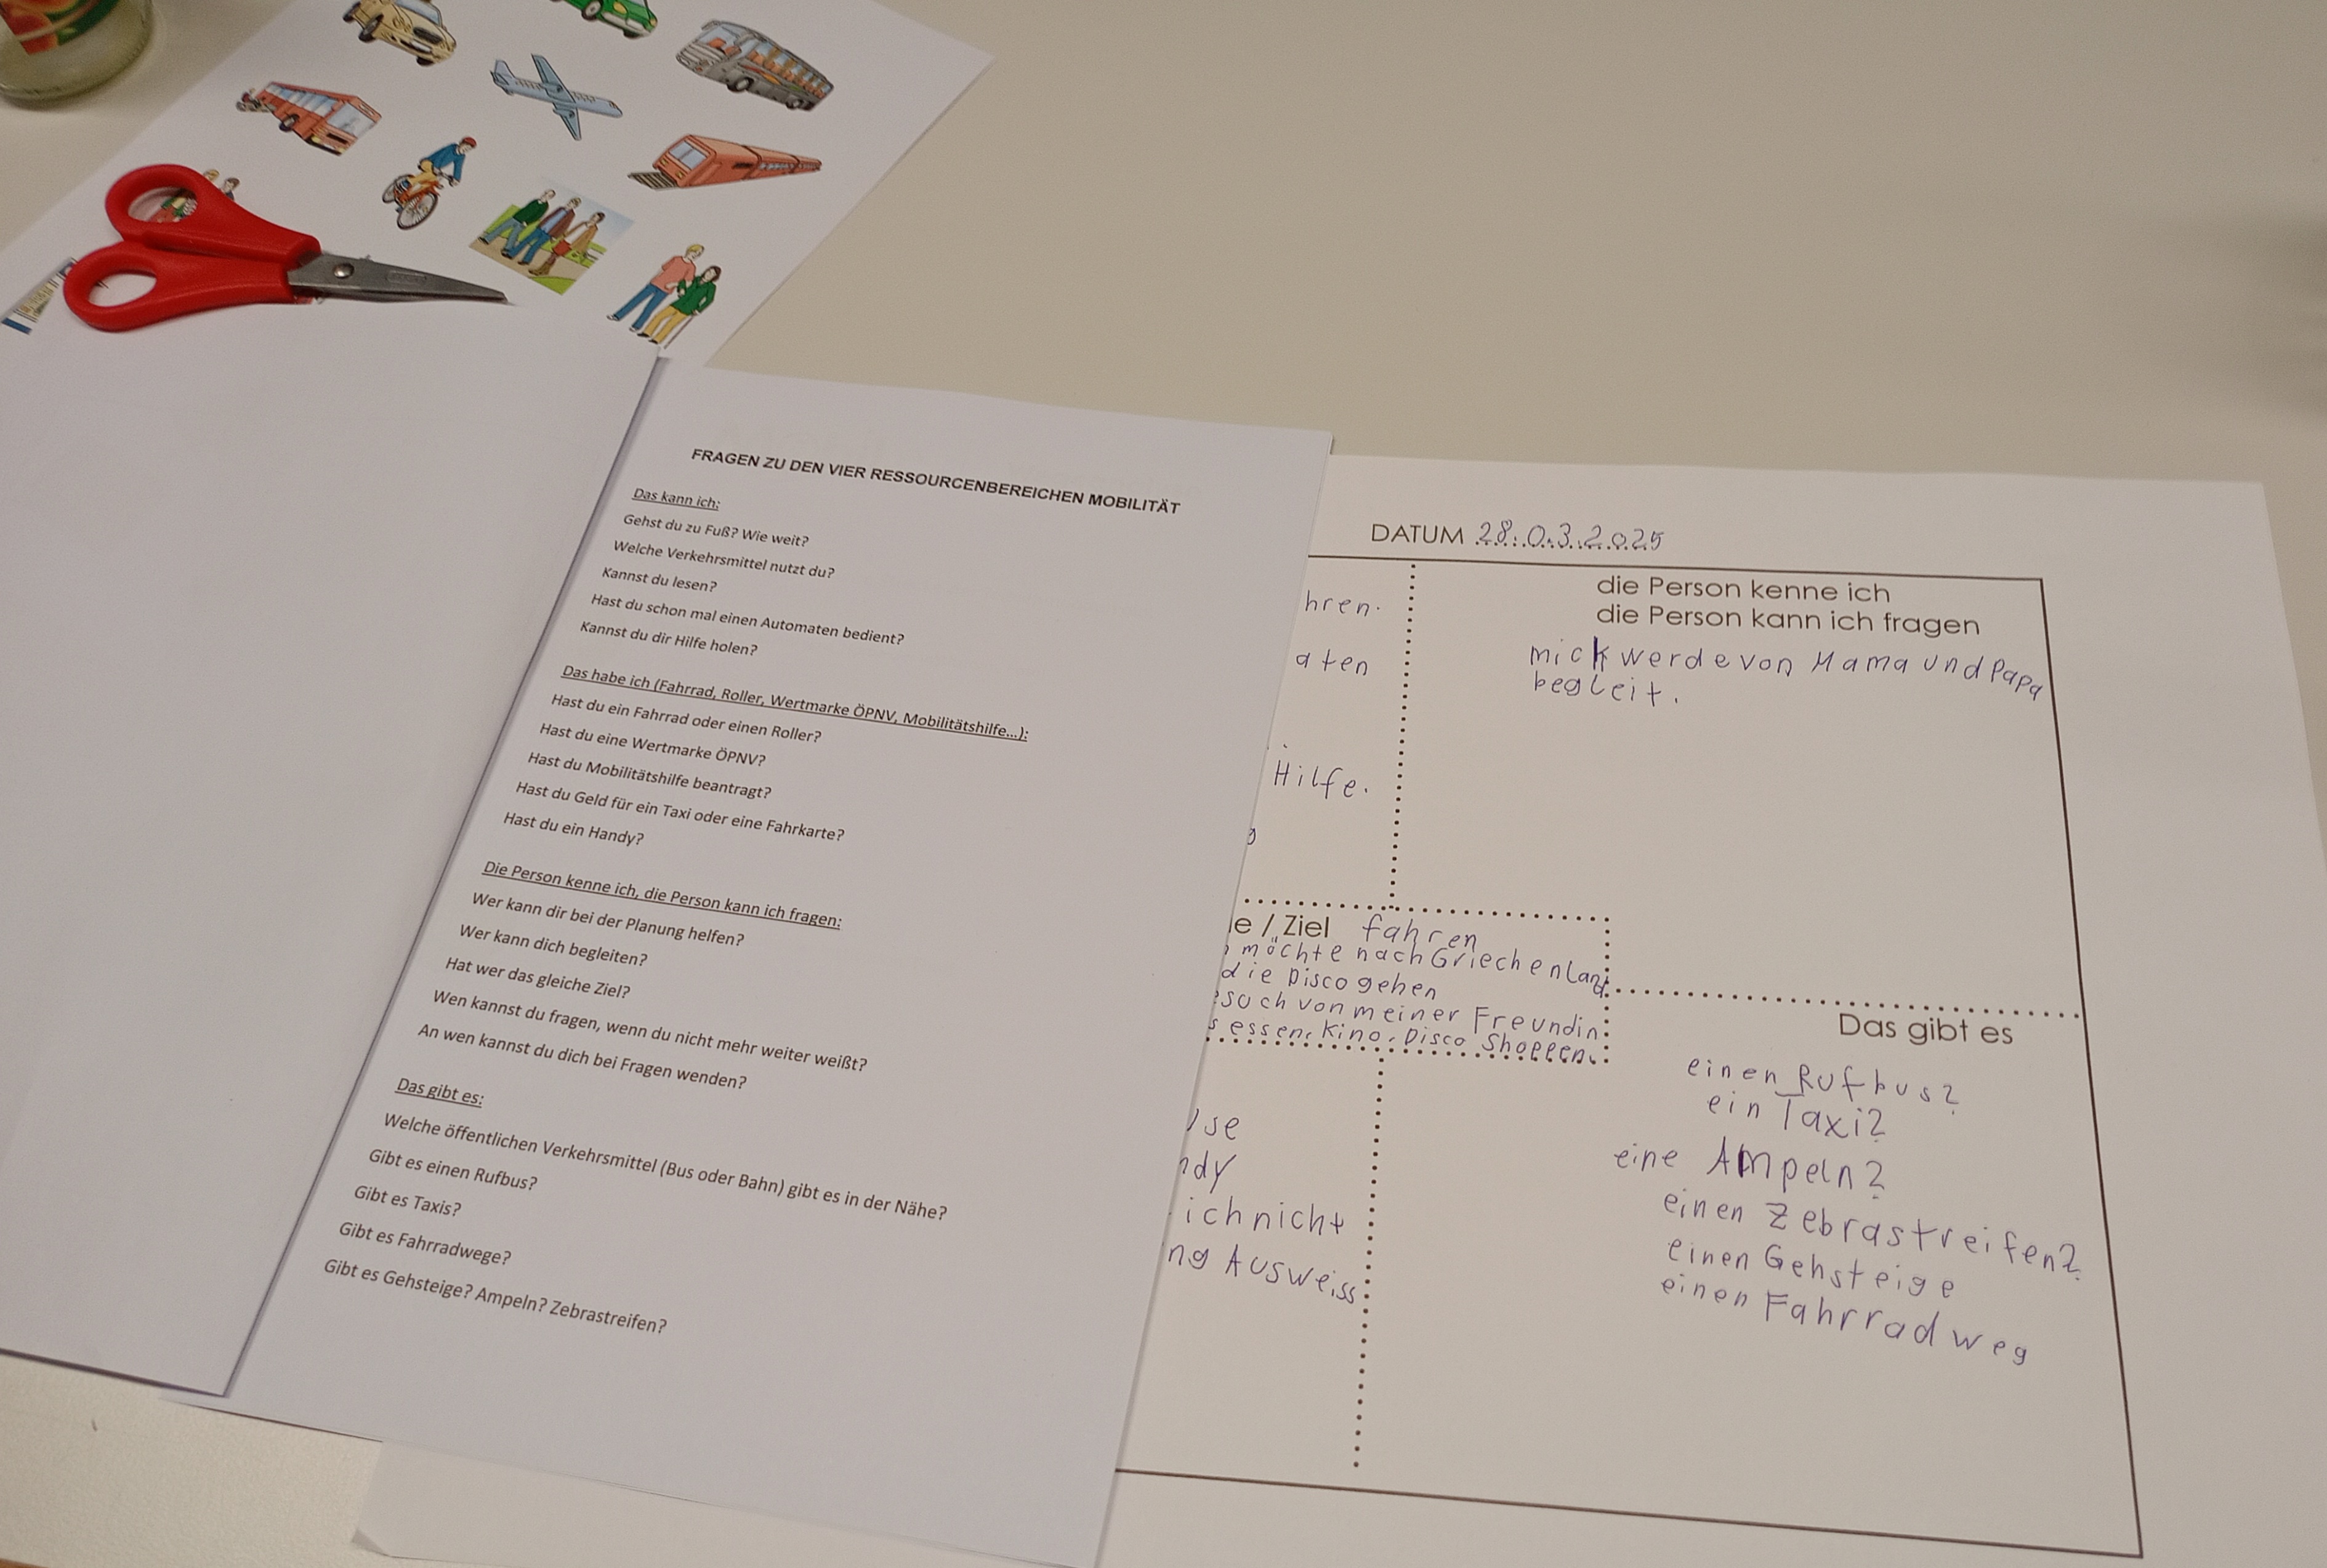 FRAGEN ZU DEN VIER RESSOURCENBEREICHEN MOBILITÄT
Das kann ich:
Gehst du zu Fuß? Wie weit?
Welche Verkehrsmittel nutzt du?
Kannst du lesen?
Hast du schon mal einen Automaten bedient?
Kannst du dir Hilfe holen?
Das habe ich (Fahrrad, Roller, Wertmarke ÖPNV, Mobilitätshilfe...):
Hast du ein Fahrrad oder einen Roller?
Hast du eine Wertmarke ÖPNV?
Hast du Mobilitätshilfe beantragt?
Hast du Geld für ein Taxi oder eine Fahrkarte?
Hast du ein Handy?
Die Person kenne ich, die Person kann ich fragen:
Wer kann dir bei der Planung helfen?
Wer kann dich begleiten?
Hat wer das gleiche Ziel?
Wen kannst du fragen, wenn du nicht mehr weiter weißt?
An wen kannst du dich bei Fragen wenden?
Das gibt es:
Welche öffentlichen Verkehrsmittel (Bus oder Bahn) gibt es in der Nähe?
Gibt es einen Rufbus?
Gibt es Taxis?
Gibt es Fahrradwege?
Gibt es Gehsteige? Ampeln? Zebrastreifen?
DATUM 28.03.2025
hren.
aten
Hilfe.
die Person kenne ich
die Person kann ich fragen
mick werde von Mama und Papa
begleit.
e / Ziel fahren
möchte nach Griechenland
die Disco gehen
such von meiner Freundin
s essen, Kino, Disco Shoppen.
use
ndy
ich nicht
ng Ausweiss
Das gibt es
einen Rufbus?
ein Taxi?
eine Ampeln?
einen Zebrastreifen?
einen Gehsteige
einen Fahrradweg